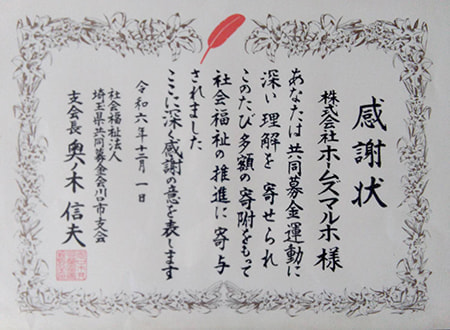 感謝状
株式会社ホームズマルホ 様
あなたは共同募金運動に
深い理解を寄せられ
このたび多額の寄附をもって
社会福祉の推進に寄与
されました
ここに深く感謝の意を表します
令和六年十二月一日
社会福祉法人
埼玉県共同募金会川口市支会
支会長 奥ノ木信夫